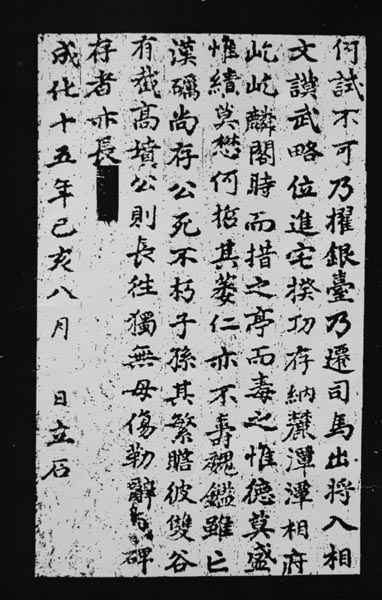 何試不可乃擢銀臺乃遷司馬出将入相
文謨武略位進宅揆功存納麓潭潭相府
屹屹麟閣時而措之亭而毒之惟德莫盛
惟績莫懋何哲其萎仁亦不壽魏鑑雖亡
漢礪尚存公死不朽子孫其繁瞻彼雙谷
有截高墳公則長往獨無毋傷勒辭碑
存者亦長
成化十五年己亥八月 日立石